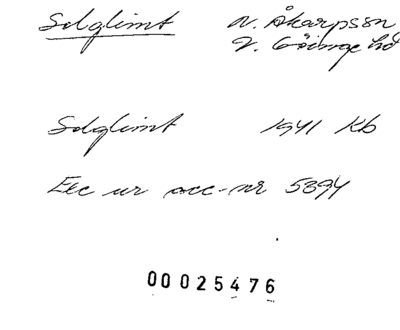 Solglimt N. Åkarpssn
V. Göinge hd
Solglimt 1941 Kb
Exc ur acc-nr 5394
00025476